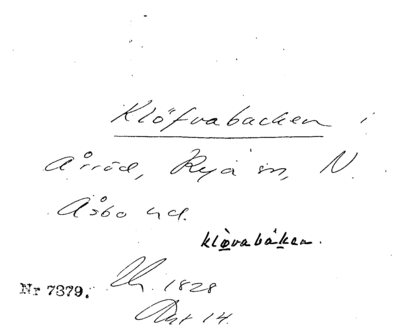 Klöfvabacken i
Årröd, Rya sn, N.
Åsbo hd.
klövabåken.
Nr 7379. 1828
Akt 14.